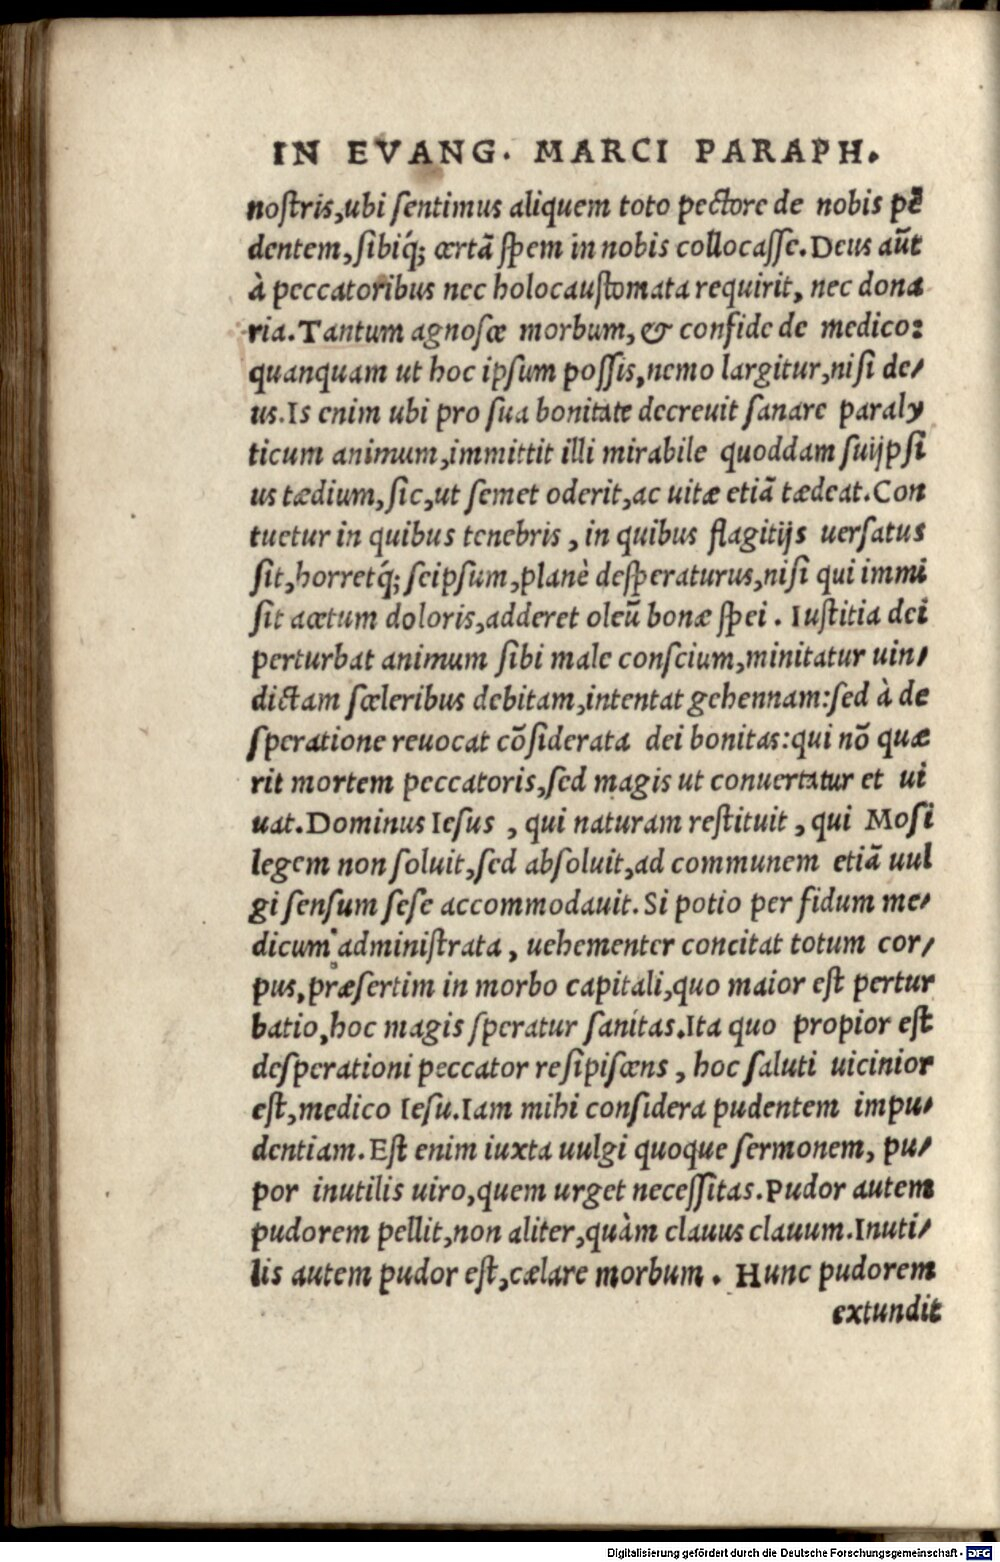 IN EVANG. MARCI PARAPH.
nostris, ubi sentimus aliquem toto pectore de nobis pẽ
dentem, sibiq́; certã spem in nobis collocasse. Deus aũt
à peccatoribus nec holocaustomata requirit, nec dona
ria. Tantum agnosce morbum, & confide de medico:
quanquam ut hoc ipsum possis, nemo largitur, nisi de/
us. Is enim ubi pro sua bonitate decreuit sanare paraly
ticum animum, immittit illi mirabile quoddam suijpsi
us tædium, sic, ut semet oderit, ac uitæ etiã tædeat. Con
tuetur in quibus tenebris, in quibus flagitijs uersatus
sit, horretq́; seipsum, planè desperaturus, nisi qui immi
sit acetum doloris, adderet oleũ bonæ spei. Iustitia dei
perturbat animum sibi male conscium, minitatur uin/
dictam sceleribus debitam, intentat gehennam: sed à de
speratione reuocat cõsiderata dei bonitas: qui nõ quæ
rit mortem peccatoris, sed magis ut conuertatur et ui
uat. Dominus Iesus, qui naturam restituit, qui Mosi
legem non soluit, sed absoluit, ad communem etiã uul
gi sensum sese accommodauit. Si potio per fidum me/
dicum administrata, uehementer concitat totum cor/
pus, præsertim in morbo capitali, quo maior est pertur
batio, hoc magis speratur sanitas. Ita quo propior est
desperationi peccator resipiscens, hoc saluti uicinior
est, medico Iesu. Iam mihi considera pudentem impu/
dentiam. Est enim iuxta uulgi quoque sermonem, pu/
por inutilis uiro, quem urget necessitas. Pudor autem
pudorem pellit, non aliter, quàm clauus clauum. Inuti/
lis autem pudor est, cælare morbum. Hunc pudorem
extundit
Digitalisierung gefördert durch die Deutsche Forschungsgemeinschaft - DFG